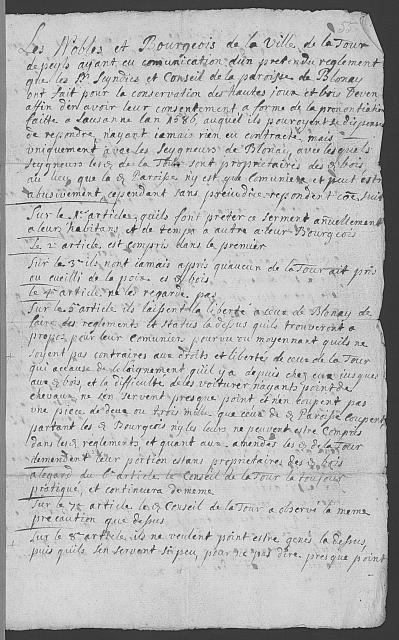 Les Nobles et Bourgeois de la Ville de la Tour
de peyls ayant eu comunication d'un pretendu reglement
que les Srs Scyndics et Conseil de la paroise de Blonay
ont fait pour la conservation des hautes joux et bois
affin d'en avoir leur consentement a forme de la prononciation
faitte a Lausanne lan 1586, auquel ils pouroyent se dispenser
de repondre nayant jamais rien eu contracté, mais
uniquement avec les Seygneurs de Blonay, avec lesquels
Seygneurs les de la Tour sont proprietaires des bois
au lieu que la Paroise ny est que Comuniere et peut estre
abusivement, cependant sans prejudice repondent come suit
Sur le 1er article, quils font prester ce serment anuellement
a leur habitans et de temps a autre a leur Bourgeois
le 2 article est compris dans le premier
Sur le 3e ils nont jamais appris quaucun de la Tour ait pris
ou cueilli de la poix es bois
le 4e article ne les regarde pas
Sur le 5e article ils laissent la liberté a ceux de Blonay de
faire des reglements et status la dessus quils trouveront a
propos pour leur Comunier pourvu ou moyennant quils ne
soyent pas contraires aux droits et liberté de ceux de la Tour
qui a cause de leloignement quil y a depuis chez eux jusques
aux bois, et la difficulté de les voiturer nayants point de
chevaux ne sen servent presque point et nen coupent pas
une piece de deux ou trois mille que ceux de Paroise coupent
partant les Bourgeois ny les leurs ne peuvent estre compris
dans les reglements, et quant aux amendes les de la Tour
demendent leur portion estans proprietaires des bois
alegard du 6e article le Conseil de la Tour la toujours
pratiqué, et continuera de meme
Sur le 7e article le Conseil de la Tour a observé la meme
precaution que dessus
Sur le 8e article ils ne veulent point estre genés la dessus,
puis quils sen servent si peu, pour ne pas dire presque point